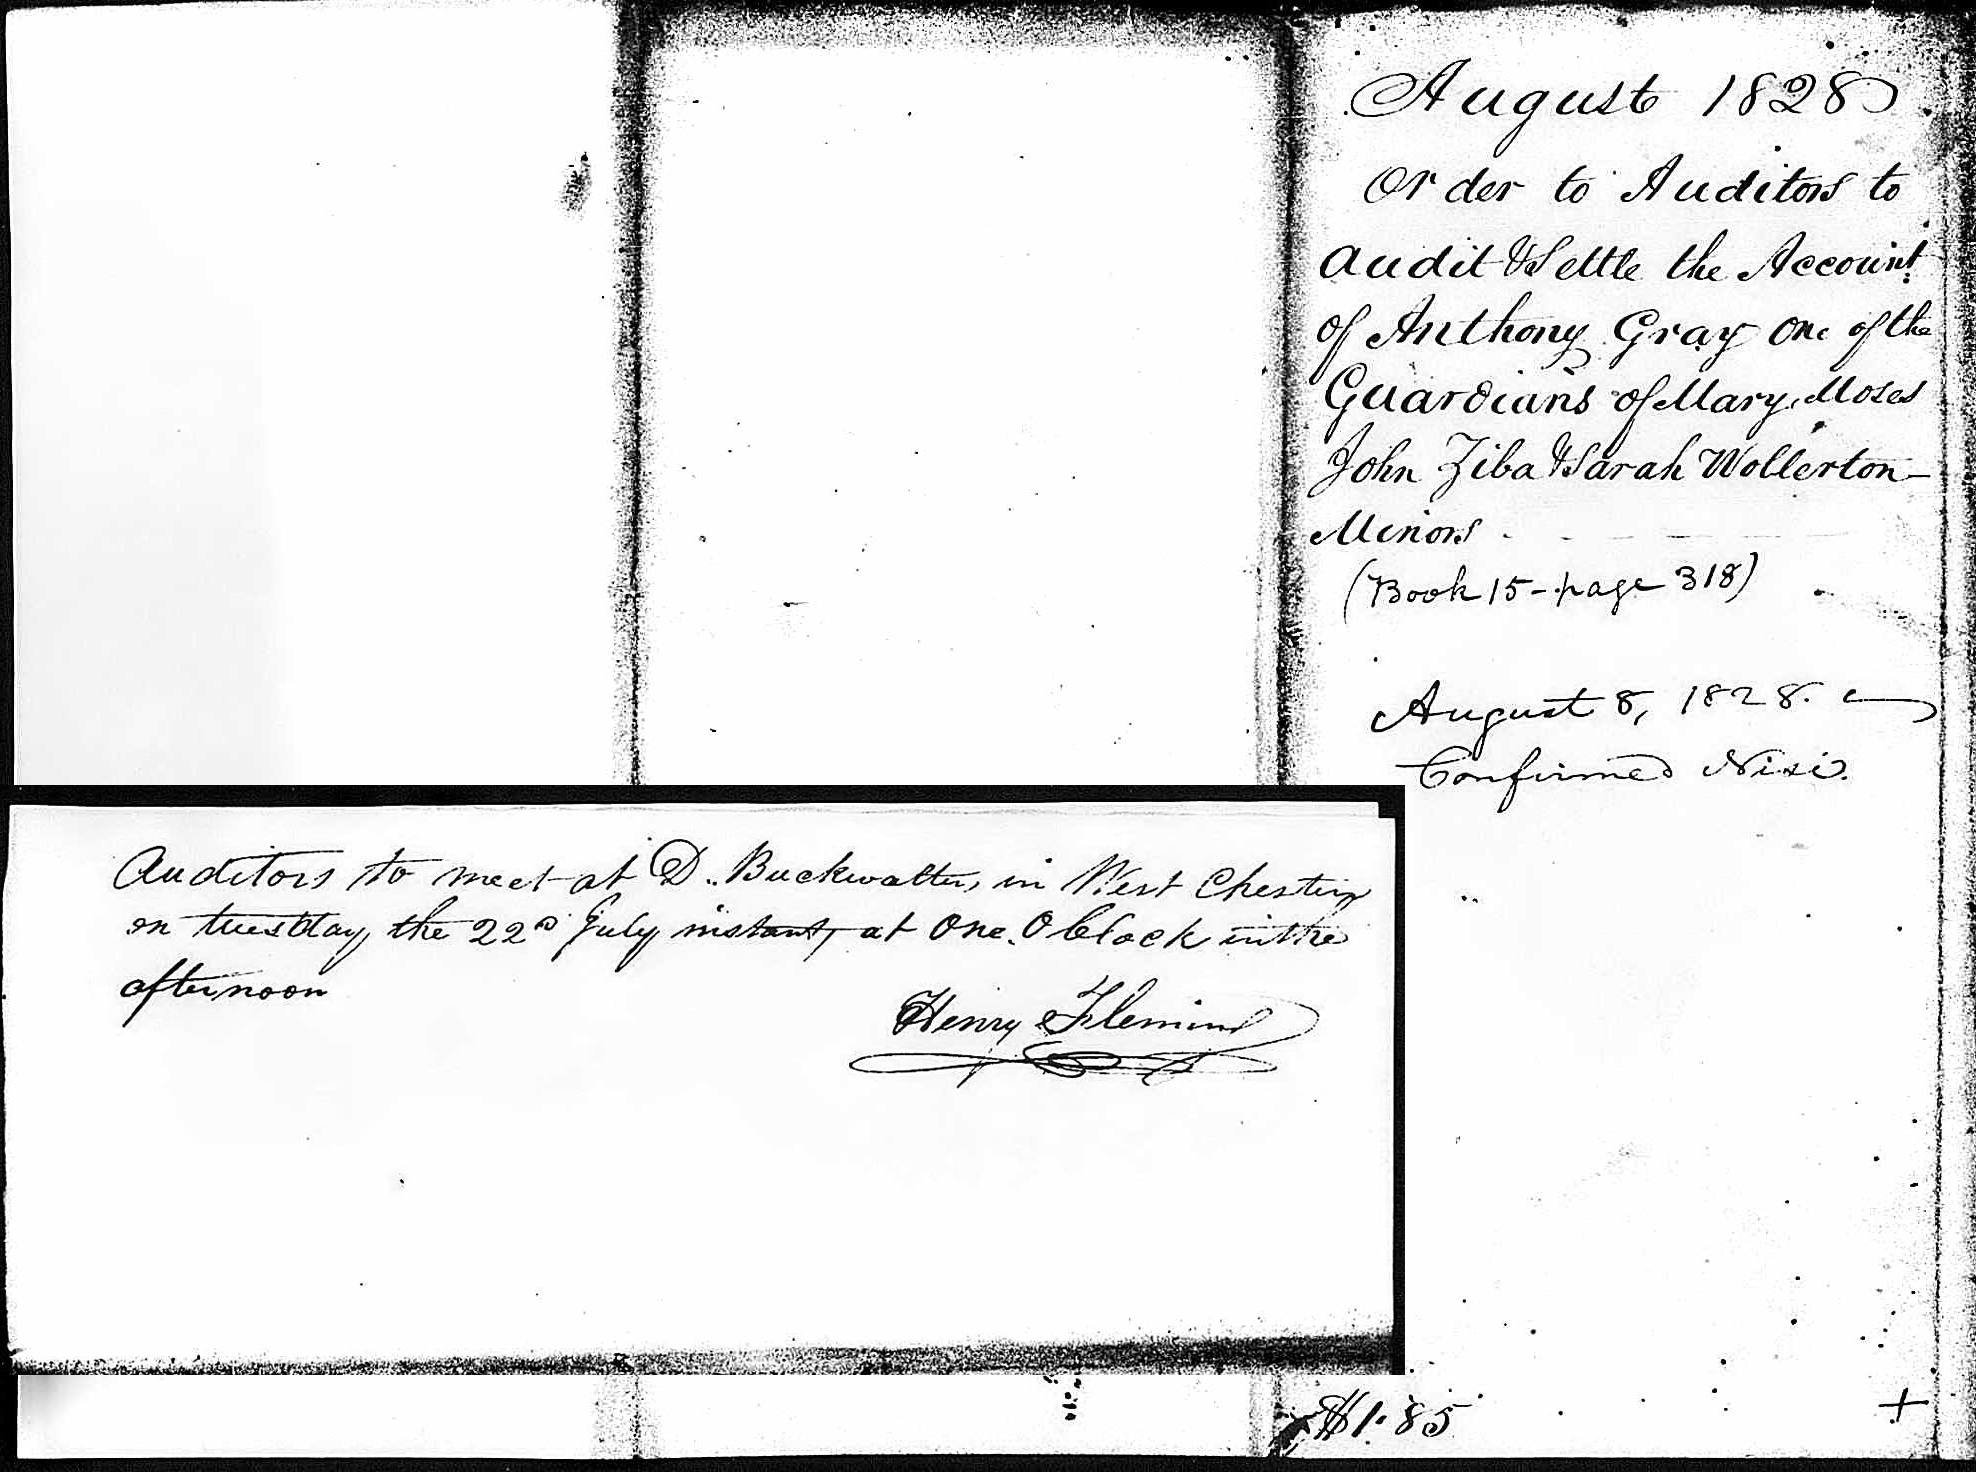 August 1828
Order to Auditors to
Audit & Settle the Account
of Anthony Gray one of the
Guardians of Mary, Moses
John Ziba & Sarah Wollerton
Minors
(Book 15 - page 318)
August 8, 1828.
Confirmed Nisi.
Auditors to meet at D. Buckwalters, in West Chester
on tuesday the 22d July instant, at One. O Clock in the
afternoon
Henry Fleming
$1.85
+